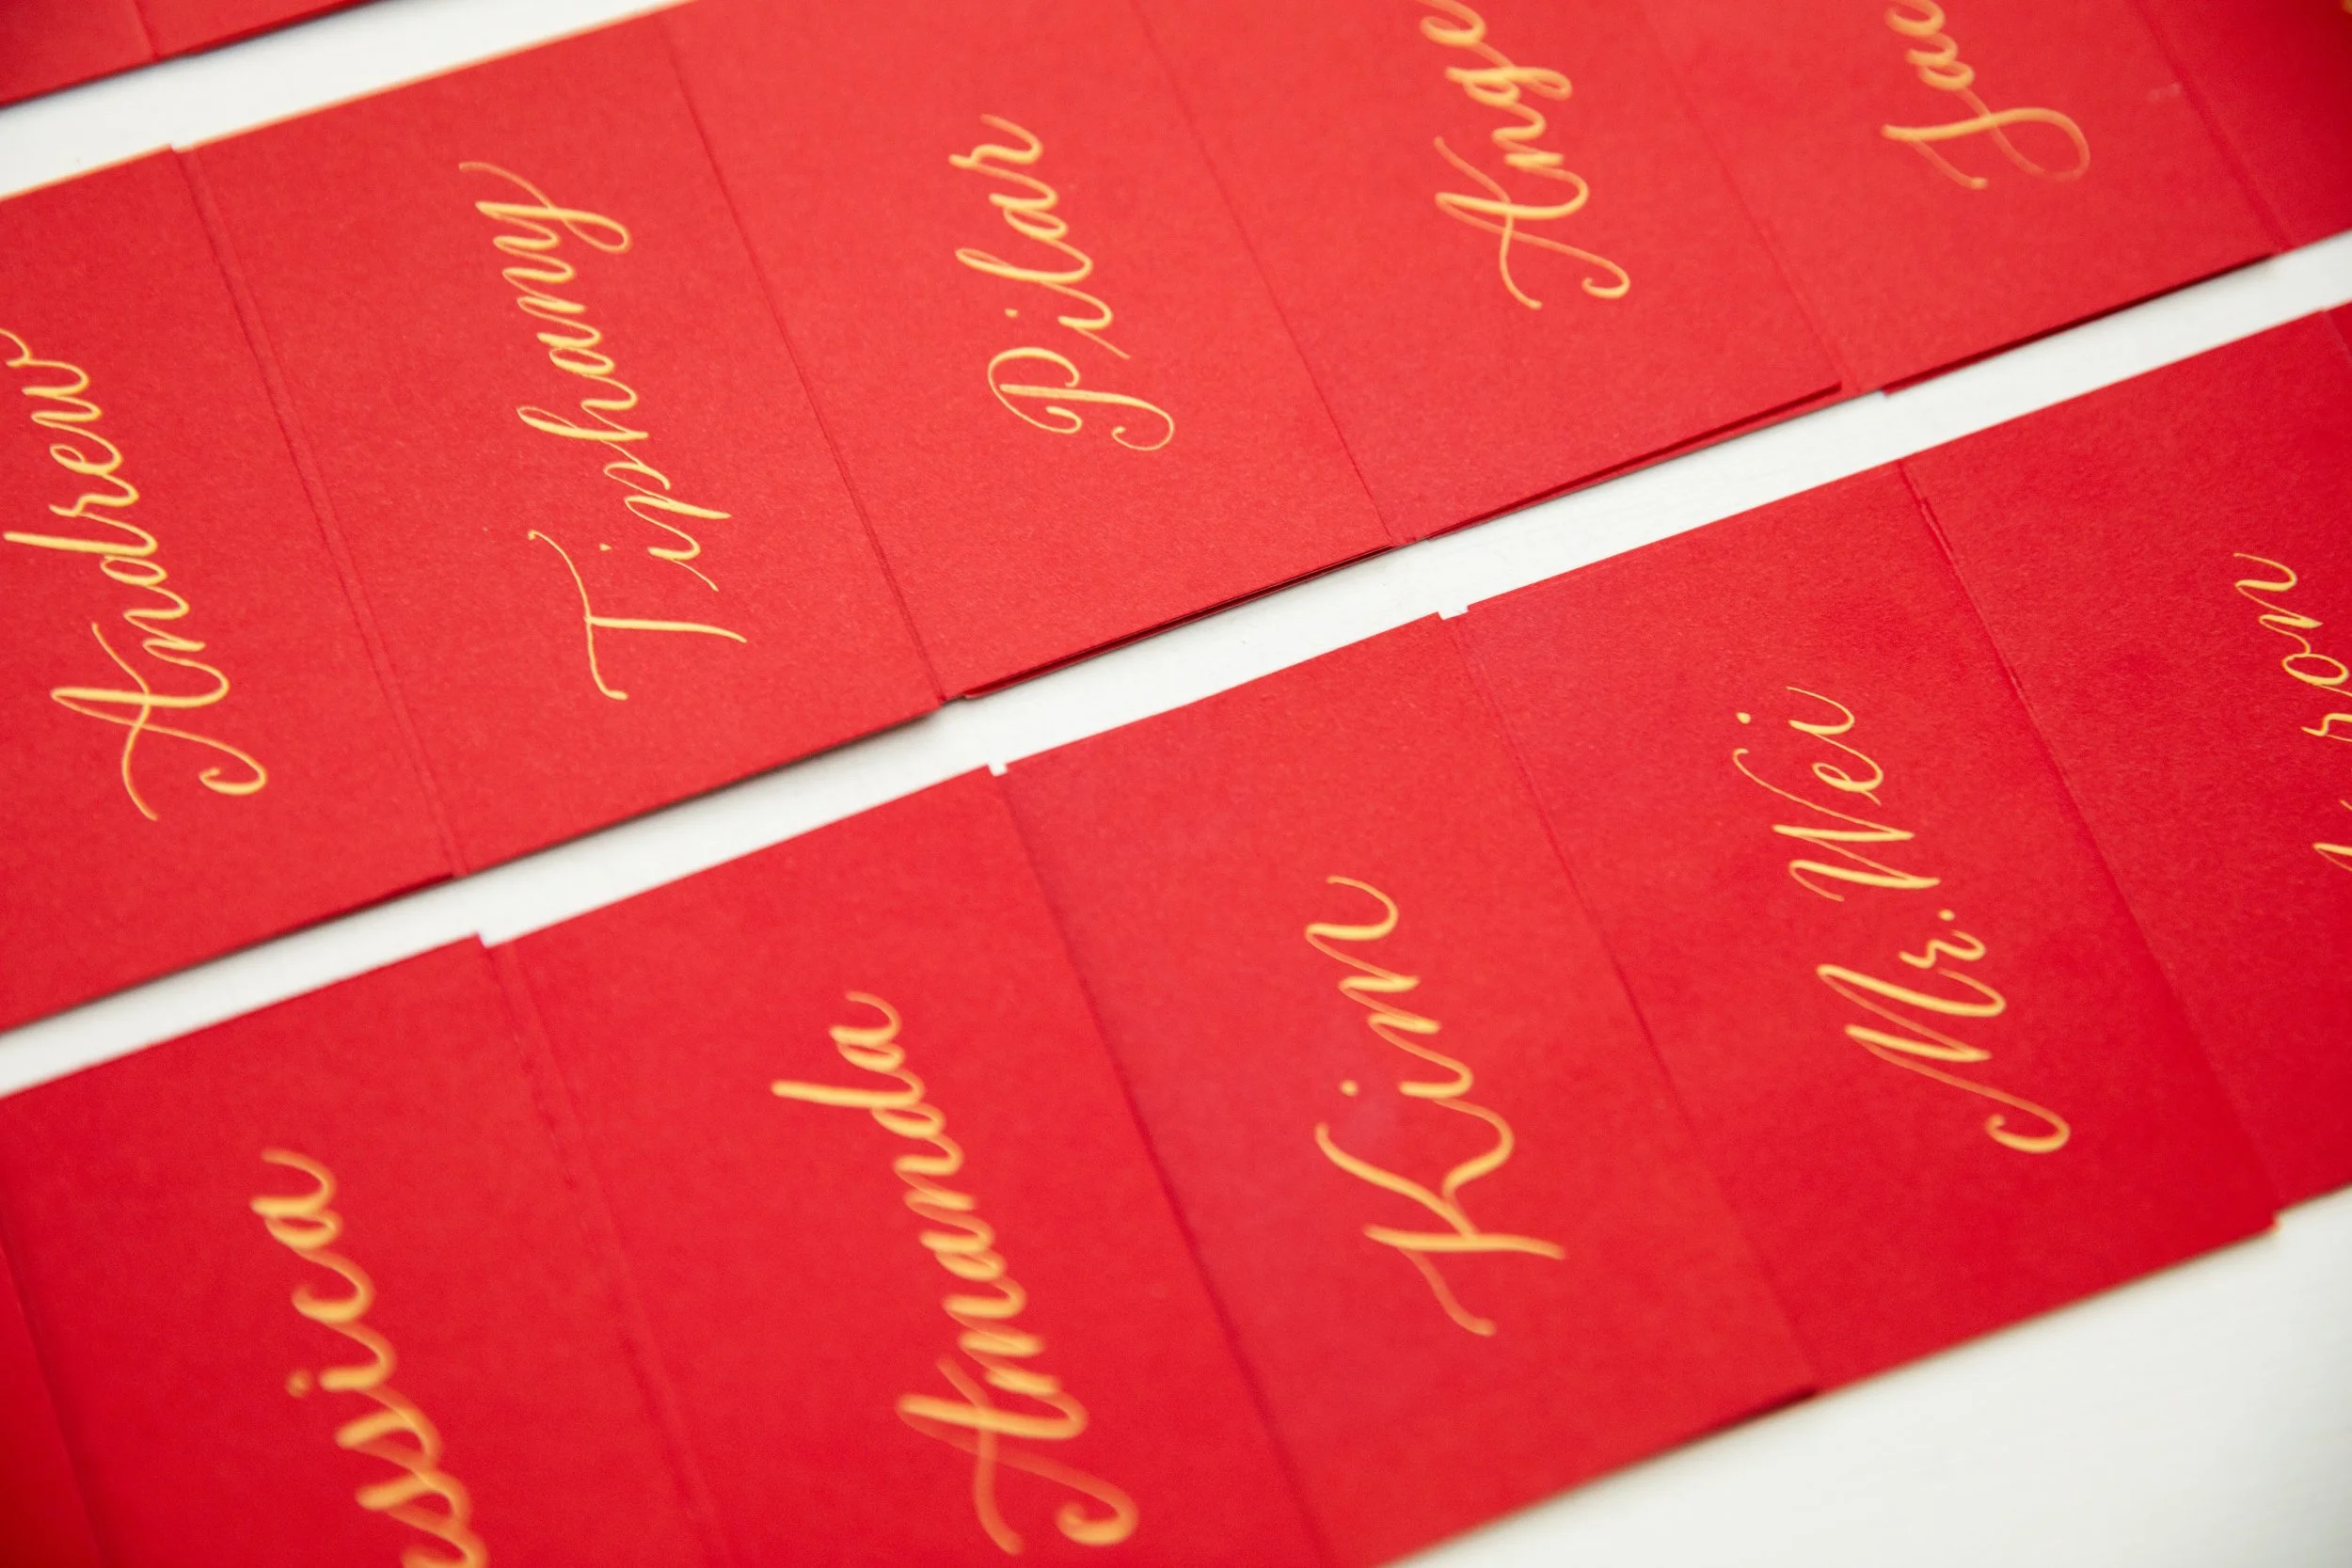 Andrew
Tiphany
Pilar
Ang
Jac
ssica
Amanda
Kim
Mr. Wei
ron